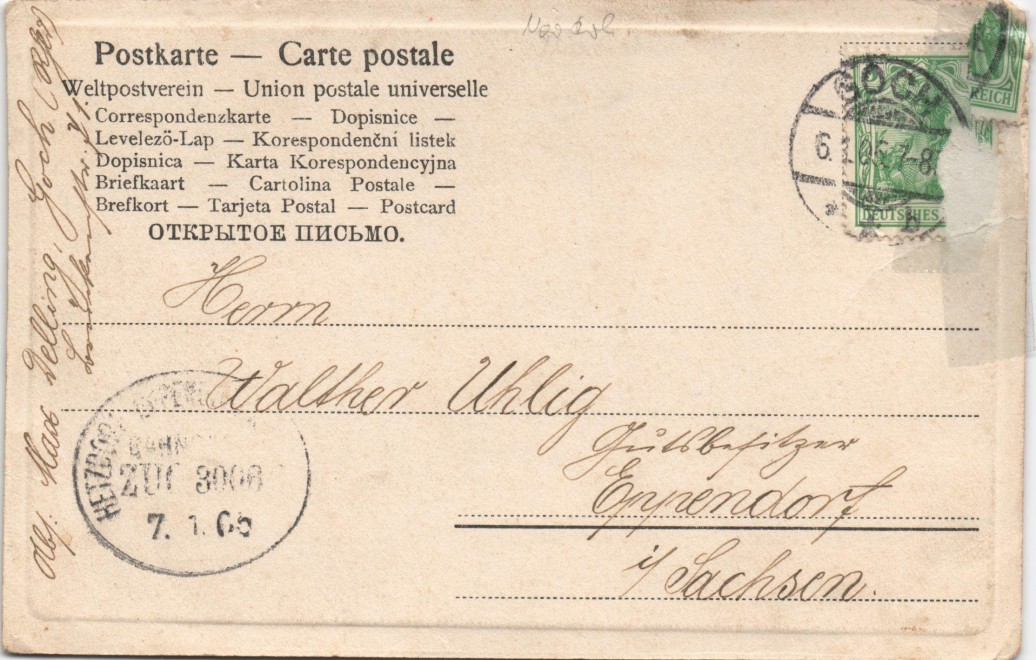 Postkarte — Carte postale
Weltpostverein — Union postale universelle
Correspondenzkarte — Dopisnice —
Levelezö-Lap — Korespondenční listek
Dopisnica — Karta Korespondencyjna
Briefkaart — Cartolina Postale —
Brefkort — Tarjeta Postal — Postcard
ОТКРЫТОЕ ПИСЬМО.
GOCH
7-8
DEUTSCHES
REICH
Herrn
Walther Uhlig
Gutsbesitzer
Eppendorf
i/Sachsen.
HETZDORF
ZUG 3006
7. 1. 05
Abs: Max Delling, Goch